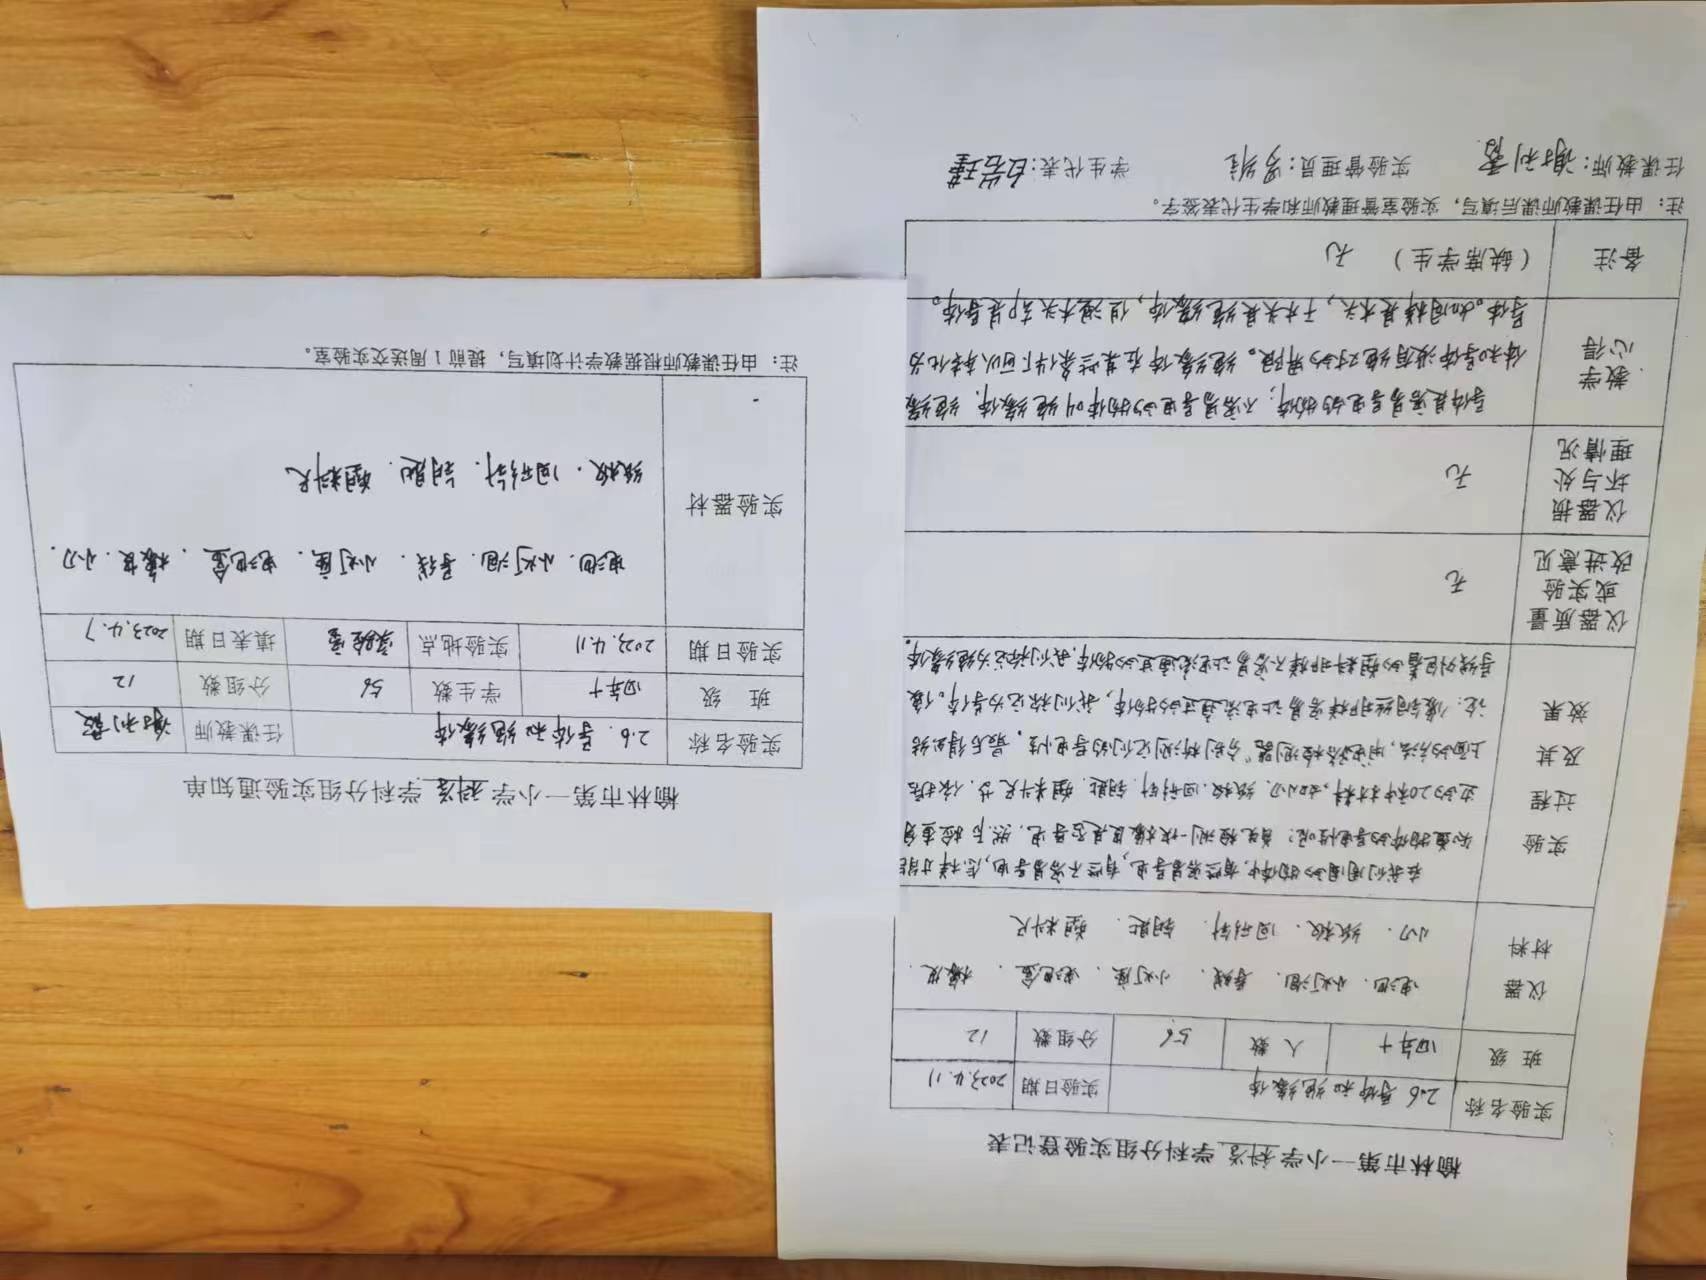 榆林市第一小学科学学科分组实验登记表
实验名称 2.6 导体和绝缘体 实验日期 2023.4.11
班 级 四年十 人 数 56 分组数 12
仪器材料 电池、小灯泡、导线、小灯座、电池盒、橡皮、
小刀、纸板、回形针、钥匙、塑料尺
实验过程及其效果
在我们周围的物体中,有些容易导电,有些不容易导电,怎样才能
知道物体的导电性呢?首先检测一块橡皮是否导电,然后检查身
边的20种材料,如小刀、纸板、回形针、钥匙、塑料尺等,依据
上面的方法,用“电路检测器”分别检测它们的导电性,最后得出结
论:像铜丝那样容易让电流通过的物体,我们称它为导体。像
导线外包着的塑料那样不容易让电流通过的物体,我们称它为绝缘体。
仪器质量或实验改进意见 无
仪器损坏与处理情况 无
教学心得
导体是容易导电的物体;不容易导电的物体叫绝缘体,绝缘
体和导体没有绝对的界限。绝缘体在某些条件下可以转化为
导体。如同样是木头,干木头是绝缘体,但湿木头却是导体。
备注 (缺席学生) 无
注:由任课教师课后填写,实验室管理教师和学生代表签字。
任课教师:谢利霞 实验管理员: 学生代表:白若瑾
榆林市第一小学科学学科分组实验通知单
实验名称 2.6 导体和绝缘体 任课教师 谢利霞
班 级 四年十 学生数 56 分组数 12
实验日期 2023.4.11 实验地点 实验室 填表日期 2023.4.7
实验器材 电池、小灯泡、导线、小灯座、电池盒、橡皮、小刀、
纸板、回形针、钥匙、塑料尺
注:由任课教师根据教学计划填写,提前1周送交实验室。